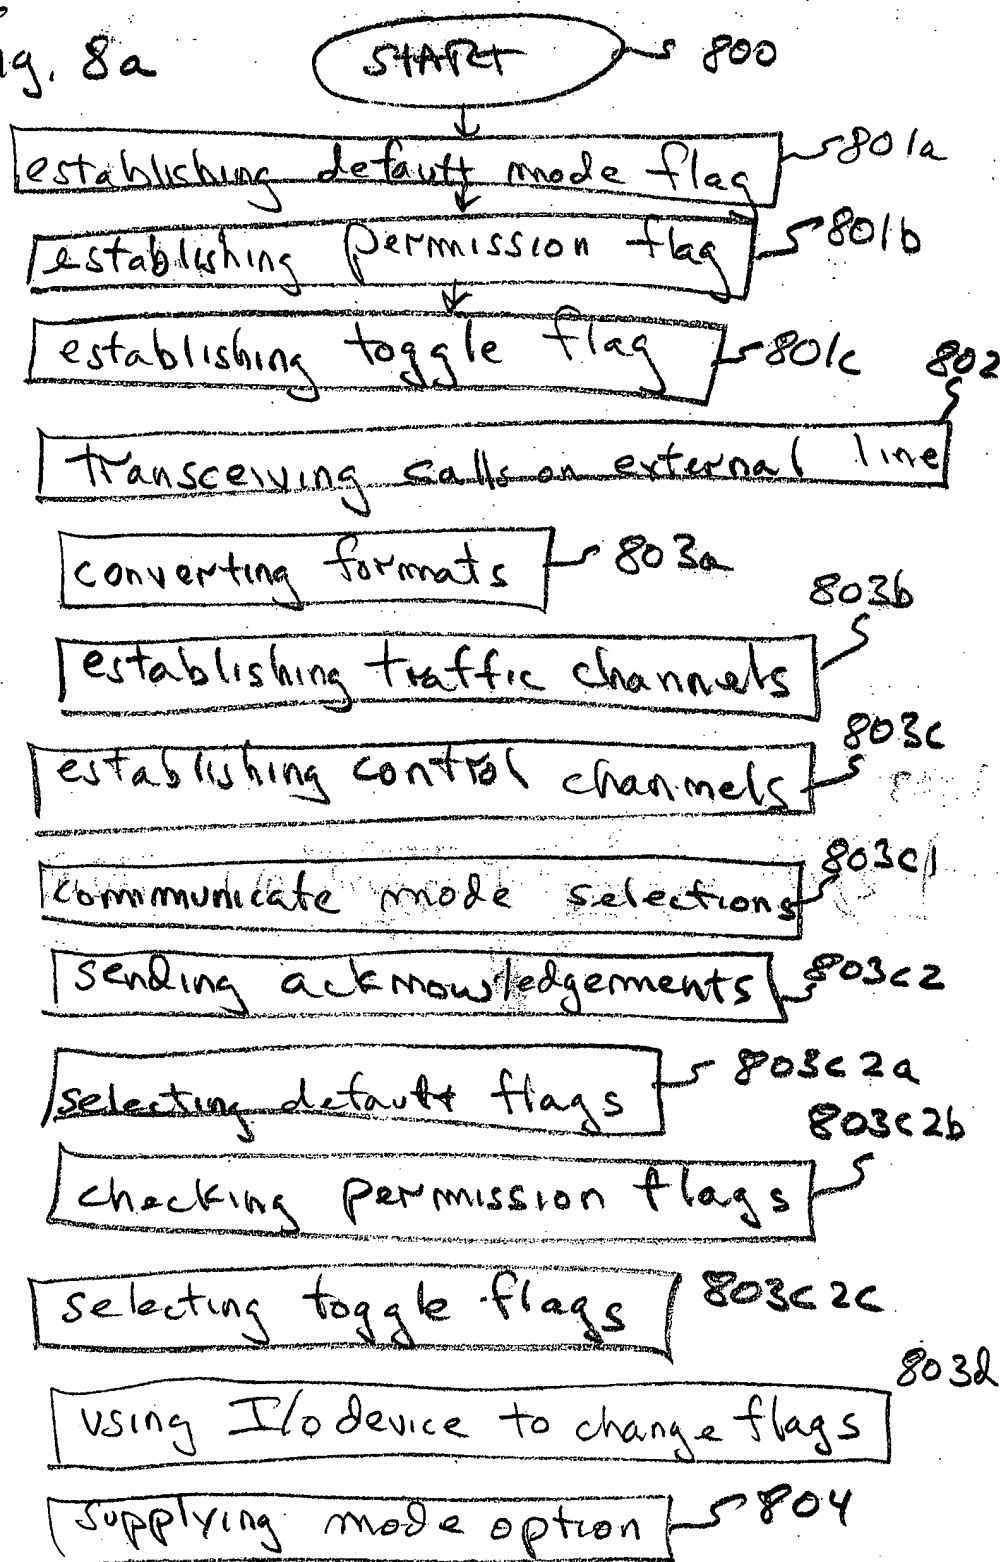 ig. 8a
START 800
establishing default mode flag 801a
establishing permission flag 801b
establishing toggle flag 801c
802
transceiving calls on external line
converting formats 803a
803b
establishing traffic channels
803c
establishing control channels
803c1
communicate mode selections
sending acknowledgements 803c2
selecting default flags 803c2a
803c2b
checking permission flags
selecting toggle flags 803c2c
803d
using I/o device to change flags
supplying mode option 804